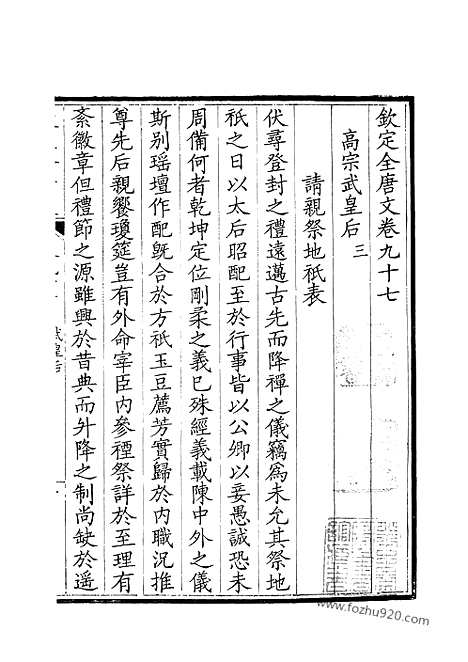 欽定全唐文卷九十七
高宗武皇后三
請親祭地祇表
伏尋登封之禮遠邁古先而降禪之儀竊為未允其祭地
祇之日以太后昭配至於行事皆以公卿以妾愚誠恐未
周備何者乾坤定位剛柔之義已殊經義載陳中外之儀
斯別瑤壇作配旣合於方祇玉豆薦芳實歸於內職況推
尊先后親饗瓊筵豈有外命宰臣內參禋祭詳於至理有
紊徽章但禮節之源雖興於昔典而升降之制尚缺於遥
www.fozhu920.com